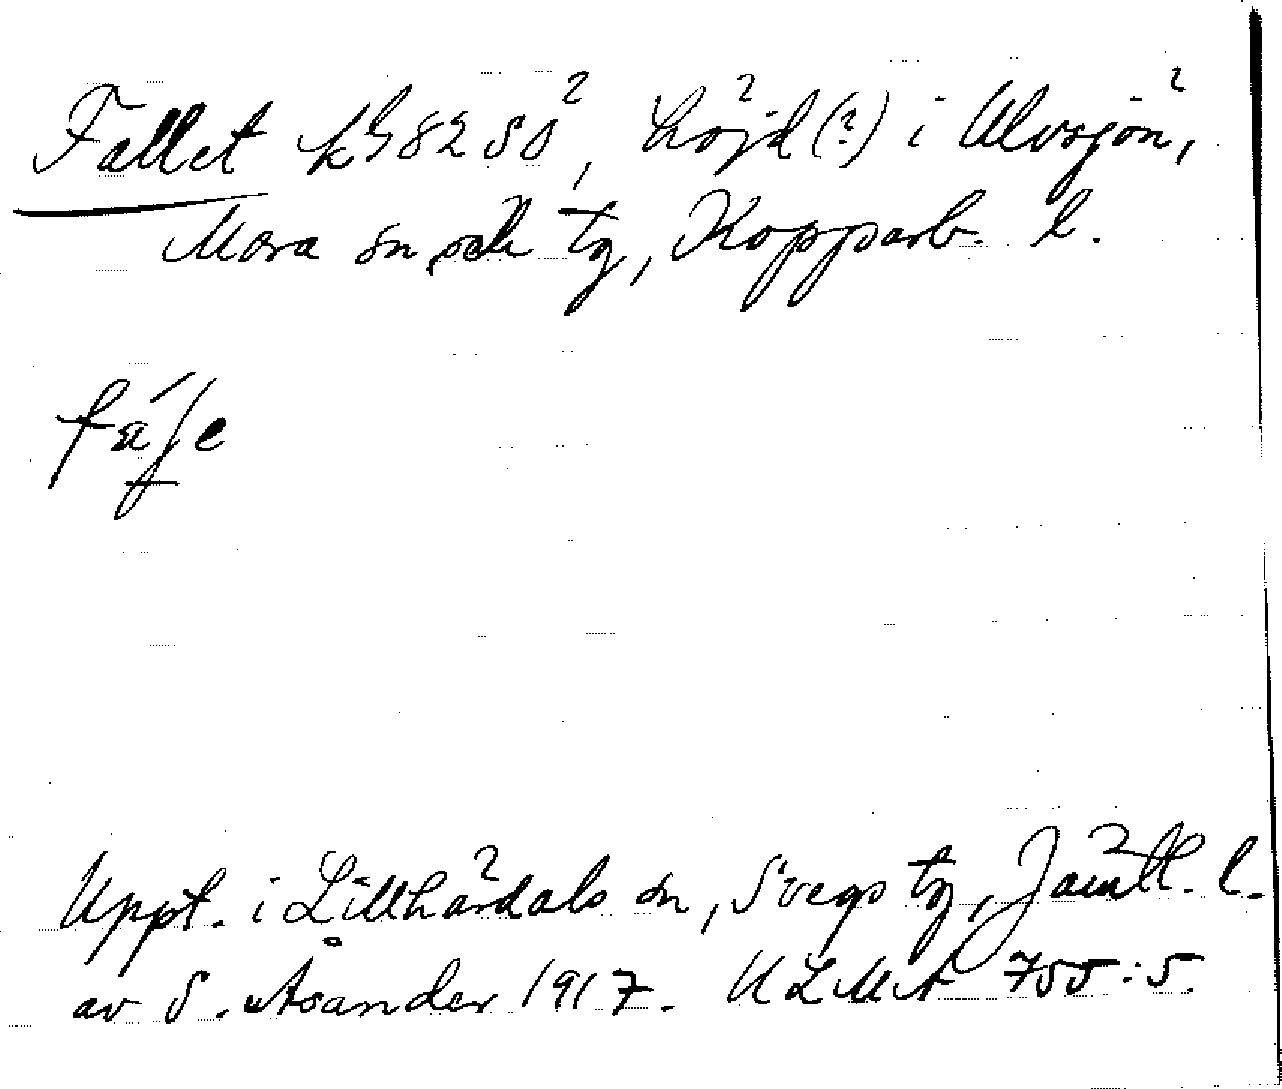 Fallet k 58280, höjd (?) i Älvsjön,
Mora sn och tg, Kopparb. l.
Uppt. i Lillhärdals sn, Svegs tg, Jämtl. l.
av S. Åsander 1917. ULMA 755:5.